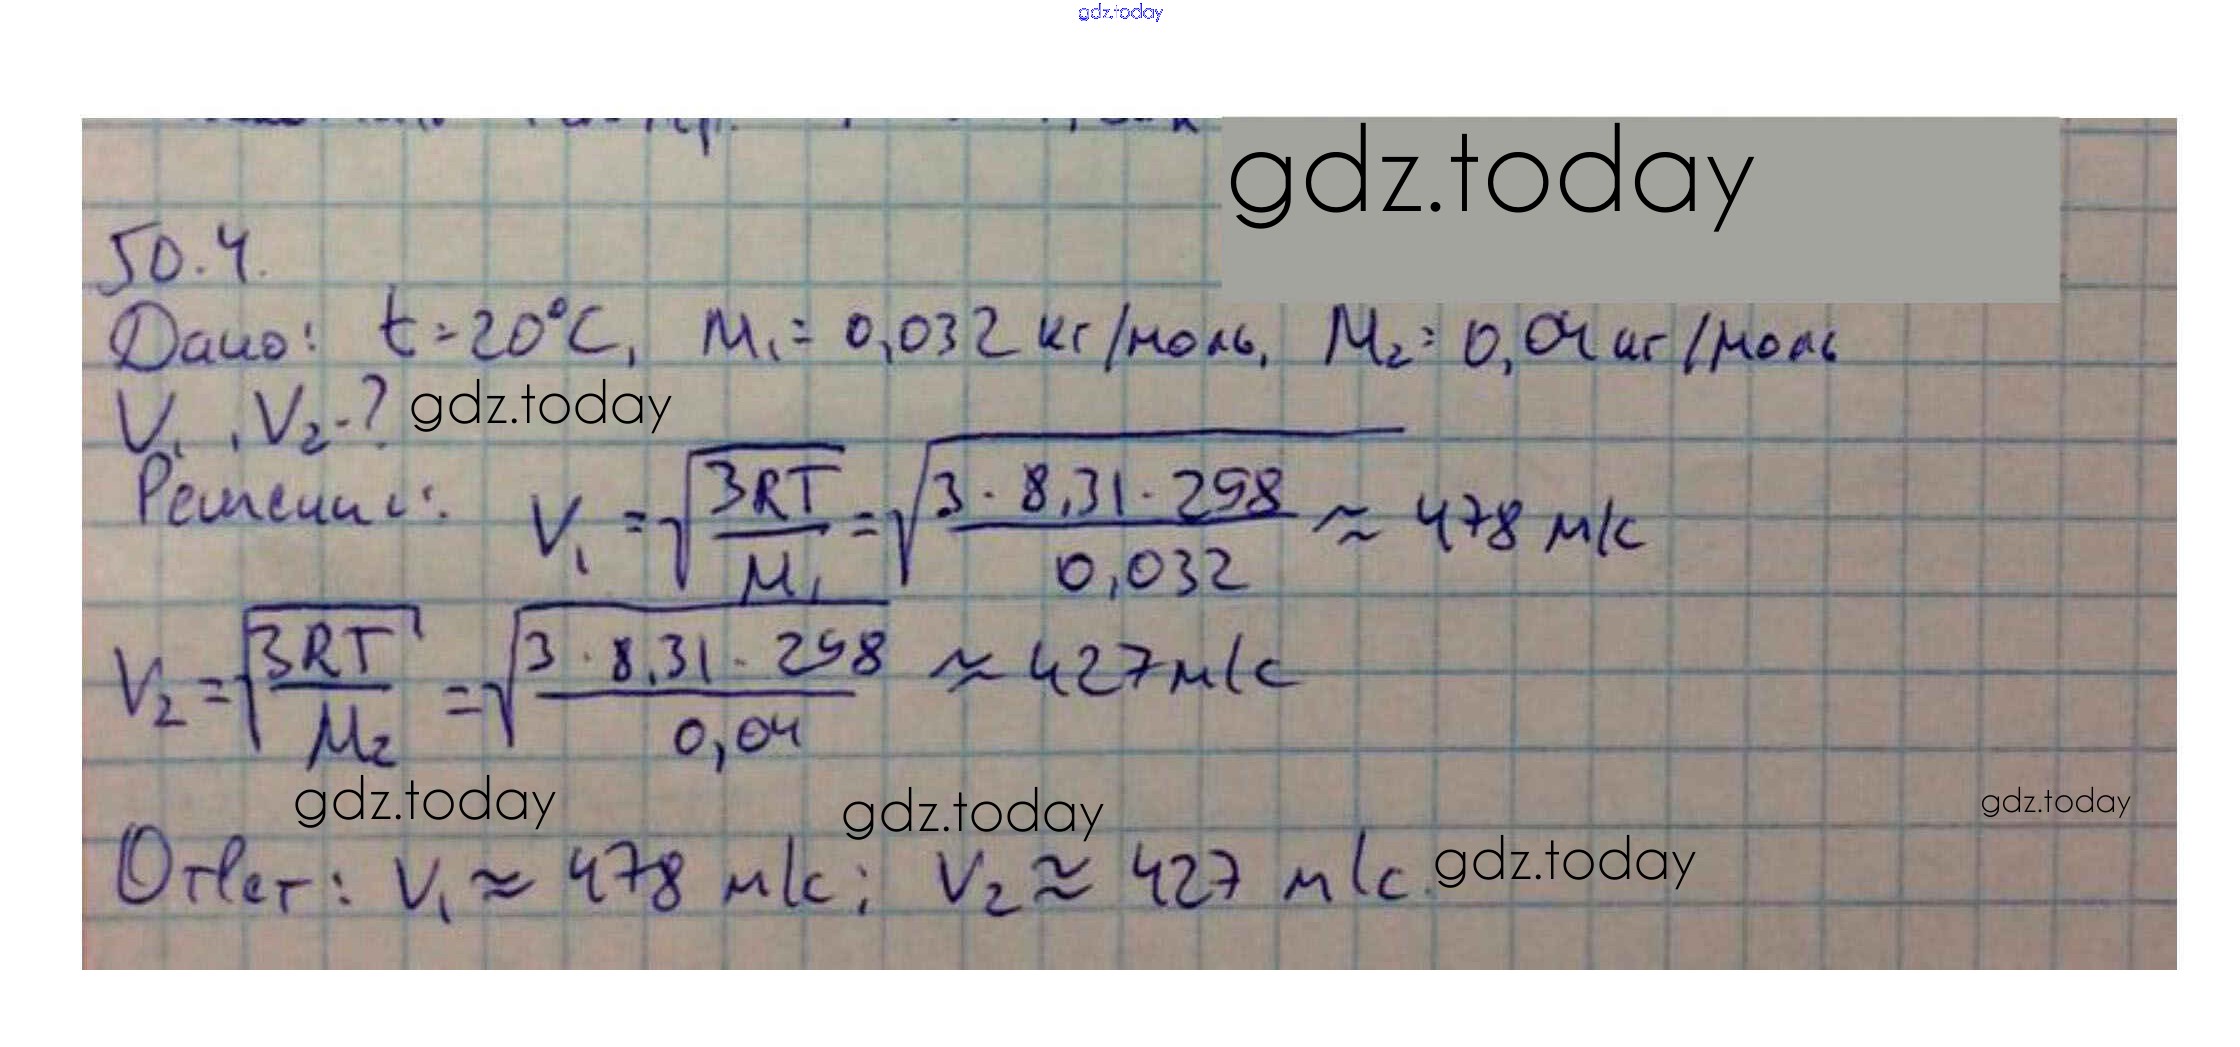 gdz.today
gdz.today
50.4.
Дано: t = 20°C, M₁ = 0,032 кг/моль, M₂ = 0,04 кг/моль
V₁, V₂ - ? gdz.today
Решение: V₁ = √(3RT/M₁) = √(3 · 8,31 · 298/0,032) ≈ 478 м/с
V₂ = √(3RT/M₂) = √(3 · 8,31 · 298/0,04) ≈ 427 м/с
gdz.today gdz.today gdz.today
Ответ: V₁ ≈ 478 м/с; V₂ ≈ 427 м/с. gdz.today